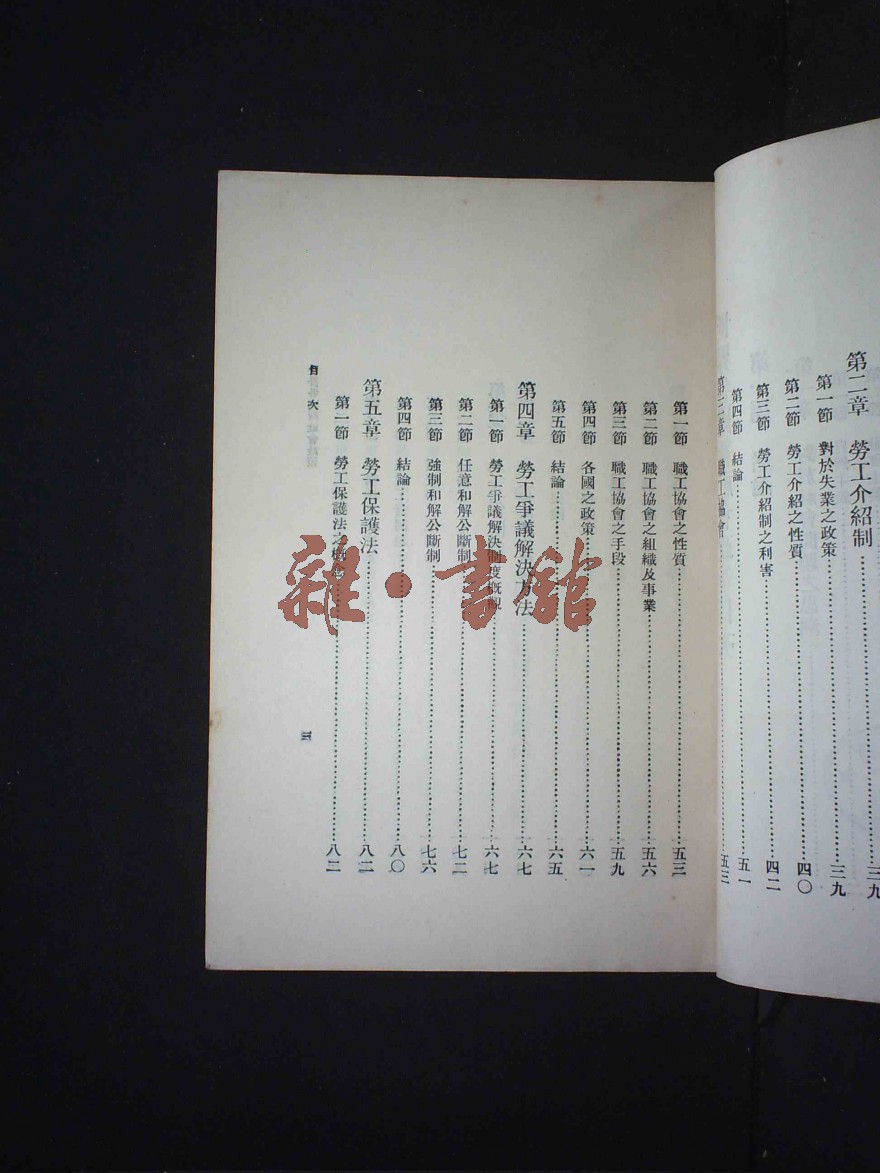 第二章　勞工介紹制……三九
第一節　對於失業之政策……三九
第二節　勞工介紹之性質……四〇
第三節　勞工介紹制之利害……四二
第四節　結論……五一
第三章　職工協會……五三
第一節　職工協會之性質……五三
第二節　職工協會之組織及事業……五六
第三節　職工協會之手段……五九
第四節　各國之政策……六一
第五節　結論……六五
第四章　勞工爭議解決方法……六七
第一節　勞工爭議解決制度概觀……六七
第二節　任意和解公斷制……七二
第三節　強制和解公斷制……七六
第四節　結論……八〇
第五章　勞工保護法……八二
第一節　勞工保護法之概念……八二
目次
五
雜·書館